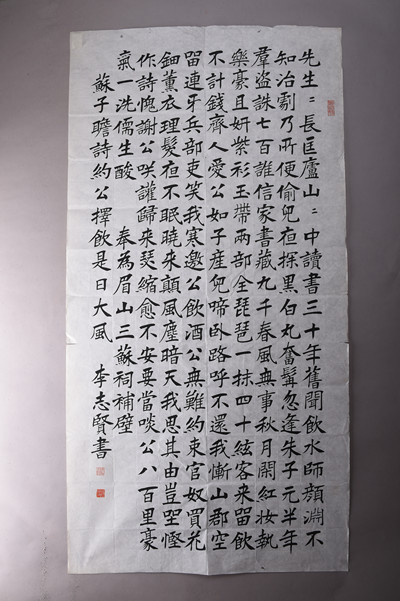 先生〻長匡廬山〻中讀書三十年舊聞飲水師顏淵不
知治劇乃所便偷兒夜探黑白丸奮髯忽逢朱子元半年
羣盜誅七百誰信家書藏九千春風無事秋月閑紅妝執
樂豪且妍紫衫玉帶兩部全琵琶一抹四十絃客來留飲
不計錢齊人愛公如子產兒啼卧路呼不還我慚山郡空
留連牙兵部吏笑我寒邀公飲酒公無難約束官奴買花
鈿薰衣理髮夜不眠曉來顛風塵暗天我思其由豈坐慳
作詩愧謝公咲讙歸來瑟縮愈不安要當啖公八百里豪
氣一洗儒生酸 奉為眉山三蘇祠補壁
蘇子瞻詩約公擇飲是日大風 李志賢書